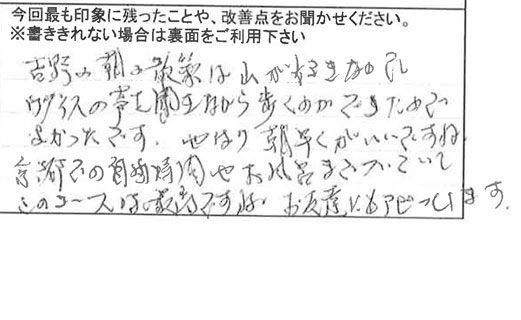 今回最も印象に残ったことや、改善点をお聞かせください。
※書ききれない場合は裏面をご利用下さい
吉野の朝の散策は山が好きなので
ウグイスの声を聞きながら歩くのができたので
よかったです。やはり朝早くがいいですね
京都での自由時間やお風呂までついていて
このコースは最高ですね。お友達にもアピールします。